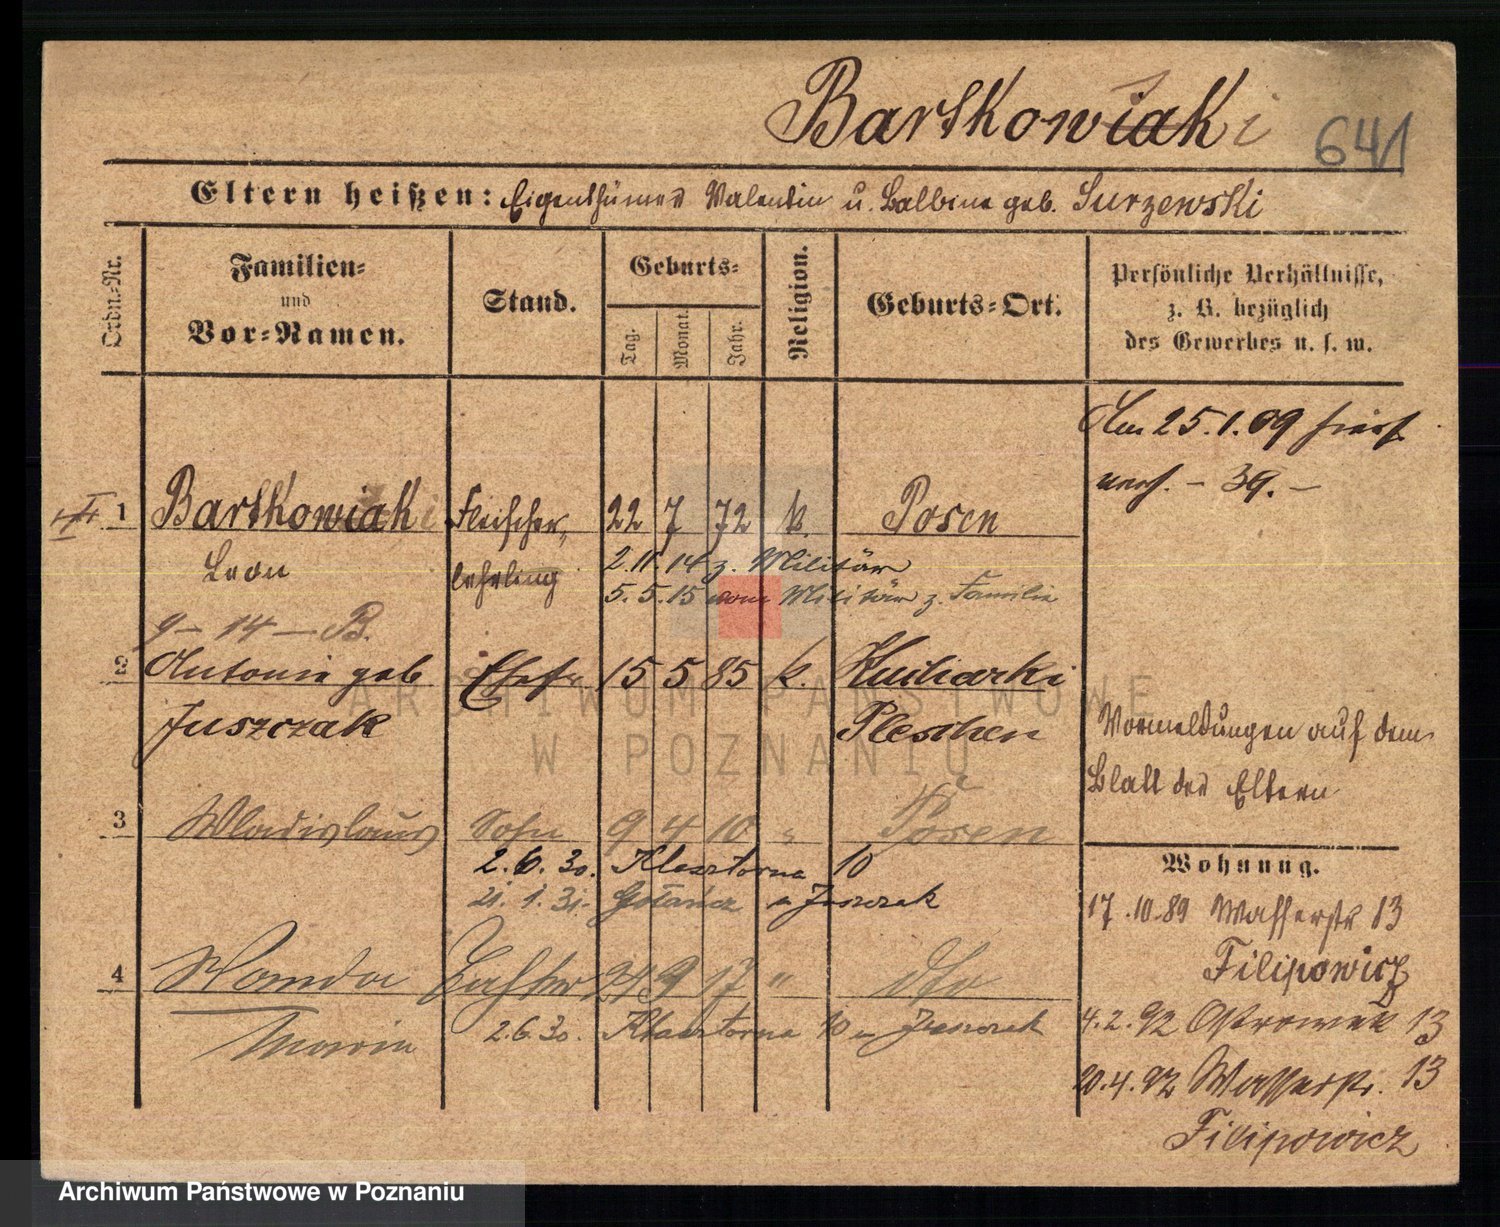 Bartkowiaki
641
Eltern heißen: Eigenthümer Valentin u. Balbine geb. Surzewski
Ordn.-Nr.
Familien-
und
Vor-Namen.
Stand.
Geburts-
Tag.
Monat.
Jahr.
Religion.
Geburts-Ort.
Persönliche Verhältnisse,
z. B. bezüglich
des Gewerbes u. s. w.
Am 25.1.09 hierf
verh. - 39. -
1 Bartkowiaki Fleischer- 22 7 72 k. Posen
Leon lehrling 2.11.14 z. Militär
5.5.15 vom Militär z. Familie
9 - 14 - B.
2 Antonie geb Ehefr 15 5 85 k.
Juszczak Pleschen
Vormeldungen auf dem
Blatt der Eltern
3 Wladislaus Sohn 9 4 10 " Posen
2.6.30. Klasztorna 10
21.1.31. Gołańcz Juszczak
Wohnung.
17.10.89 Wasserstr 13
Filipowicz
4 Wanda Tochter 24 9 17 " dto
Maria 2.6.30. Klasztorna 10 Juszczak
4.2.92 Ostrowek 13
20.4.92 Wasserstr. 13
Filipowicz
ARCHIWUM PAŃSTWOWE
W POZNANIU
Archiwum Państwowe w Poznaniu